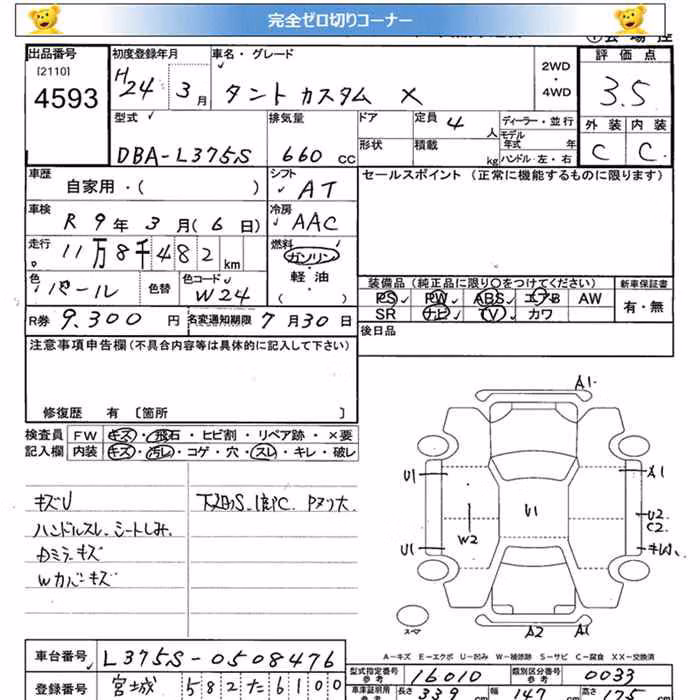 完全ゼロ切りコーナー
出品番号
[2110]
4593
初度登録年月
H 24 3月
車名・グレード
タントカスタム X
2WD
・
4WD
評価点
3.5
外装 内装
C C
型式
DBA-L375S
排気量
660 cc
ドア
形状
定員 4 人
積載 kg
ディーラー・並行
モデル年式 年
ハンドル・左・右
車歴
自家用・( )
シフト
AT
セールスポイント(正常に機能するものに限ります)
車検
R 9年 3月 (6日)
冷房
AAC
走行
11万8千482 km
燃料
ガソリン
・
軽油
・
( )
色
パール
色替
色コード
W24
装備品(純正品に限り○をつけてください)
PS PW ABS エアB AW
SR ナビ TV カワ
新車保証書
有・無
R券 9.300 円
名変通知期限 7月30日
後日品
注意事項申告欄(不具合内容等は具体的に記入して下さい)
修復歴 有 〔箇所 〕
検査員 FW キズ・飛石・ヒビ割・リペア跡・×要
記入欄 内装 キズ・汚レ・コゲ・穴・スレ・キレ・破レ
キズU
ハンドルスレ、シートしみ、
Dミラーキズ
Wカバーキズ
A1
U1
A1
U1
U2
C2
W2
U1
キW
スペア
A2
A1
A-キズ E-エクボ U-凹み W-補修跡 S-サビ C-腐食 XX-交換済
車台番号 L375S-0508476
型式指定番号 参考 16010
類別区分番号 参考 0033
登録番号 宮城 582た6100
車庫証明用 参考 長さ 339 cm 幅 147 cm 高さ 175 cm